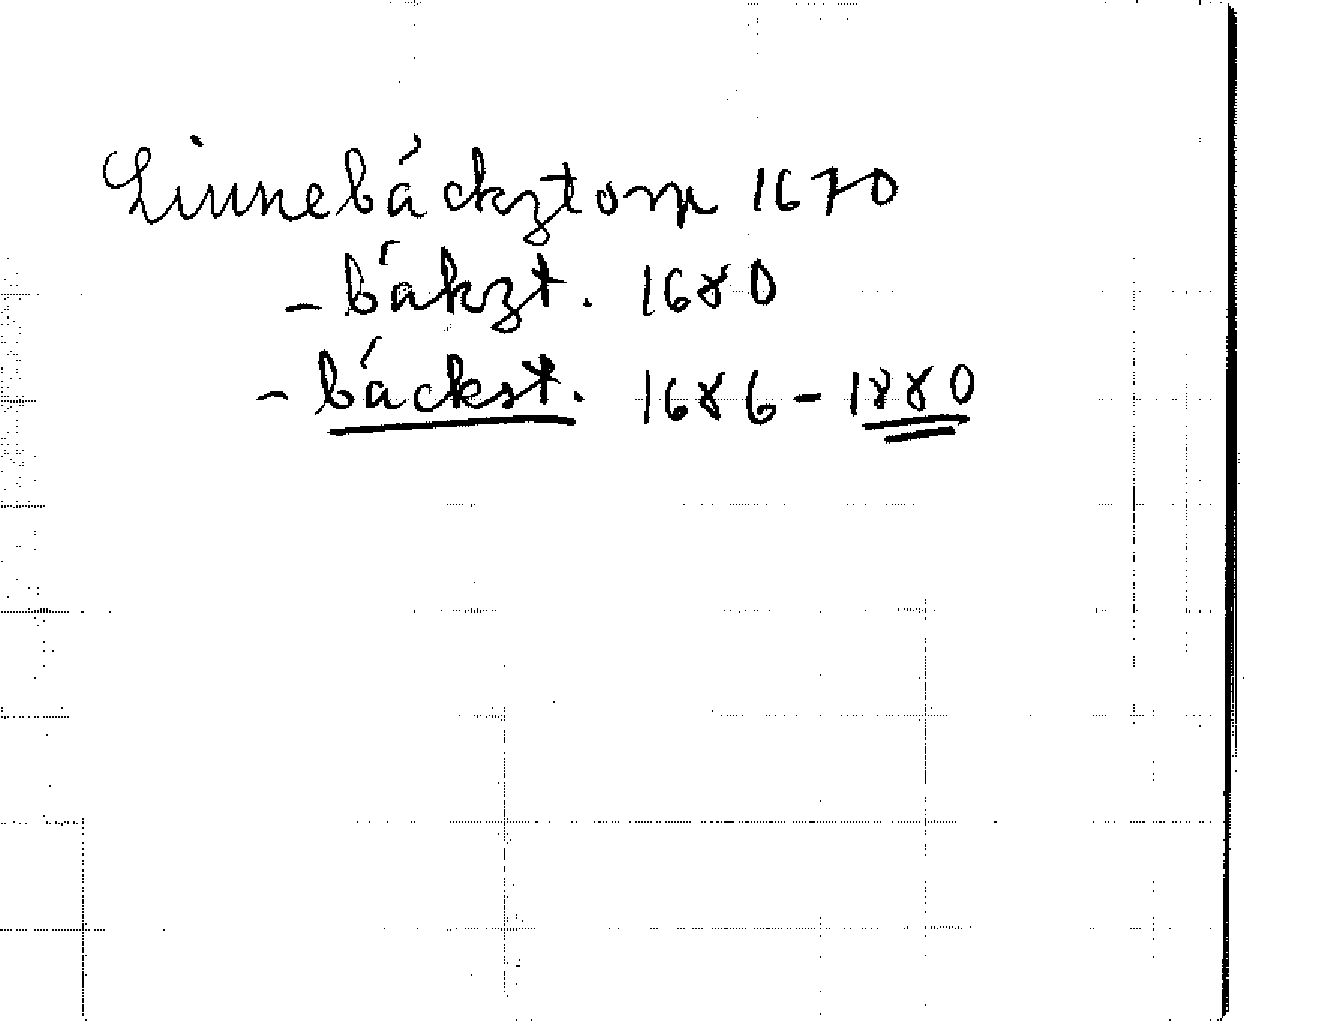 Linnebäcksztorp 1670
- bäkzt. 1680
- bäckst. 1686 - 1880